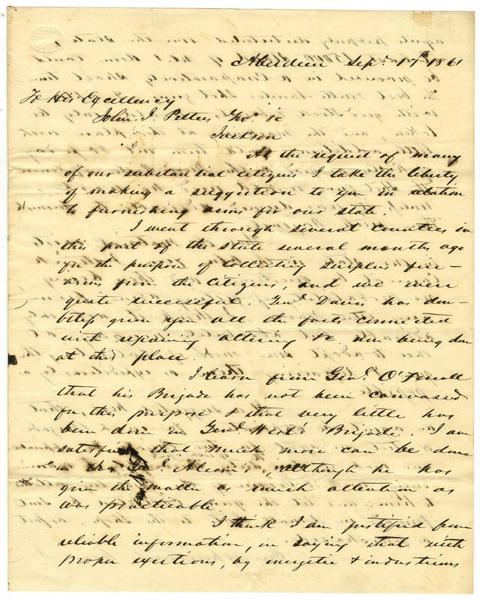 Aberdeen Sept. 17th 1861
To His Excellency
John J. Pettus, Gov. &c
Jackson
At the request of many
of our substantial citizens I take the liberty
of making a suggestion to you in relation
to furnishing arms for our state.
I went through several counties in
this part of the state several months ago
for the purpose of collecting surplus fire-
arms from the citizens, and we were
quite successful. Genl. Davis has dou-
btless given you all the facts connected
with repairing altering &c now being done
at this place.
I learn from Genl. O'Ferrall
that his Brigade has not been canvassed
for this purpose & that very little has
been done in Genl West's Brigade. I am
satisfied that much more can be done
in Genl Alcorn's, although he has
given the matter as much attention as
was practicable.
I think I am justified from
reliable information, in saying that with
proper exertions, by energetic & industrious